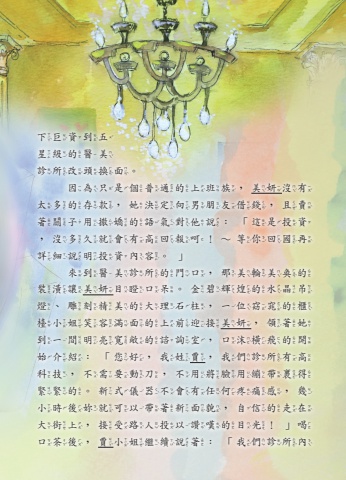 下巨資到五
星級的醫美
診所改頭換面。
因為只是個普通的上班族，美妍沒有
太多的存款，她決定向男朋友借錢，且賣
著關子用撒嬌的語氣對他說：「這是投資
，沒多久就會有高回報呵！～等你回國再
詳細說明投資內容。」
來到醫美診所的門口，那美輪美奐的
裝潢讓美妍目瞪口呆。金碧輝煌的水晶吊
燈、雕刻精美的大理石柱，一位窈窕的櫃
檯小姐笑容滿面的上前迎接美妍，領著她
到一間明亮寬敞的諮詢室，口沫橫飛的開
始介紹：「您好，我姓賈，我們診所有高
科技，不需要動刀，不用將臉用繃帶裹得
緊緊的。新式儀器不會有任何疼痛感，幾
小時後妳就可以帶著新面貌，自信的走在
大街上，接受路人投以讚嘆的目光！」喝
口茶後，賈小姐繼續說著：「我們診所內